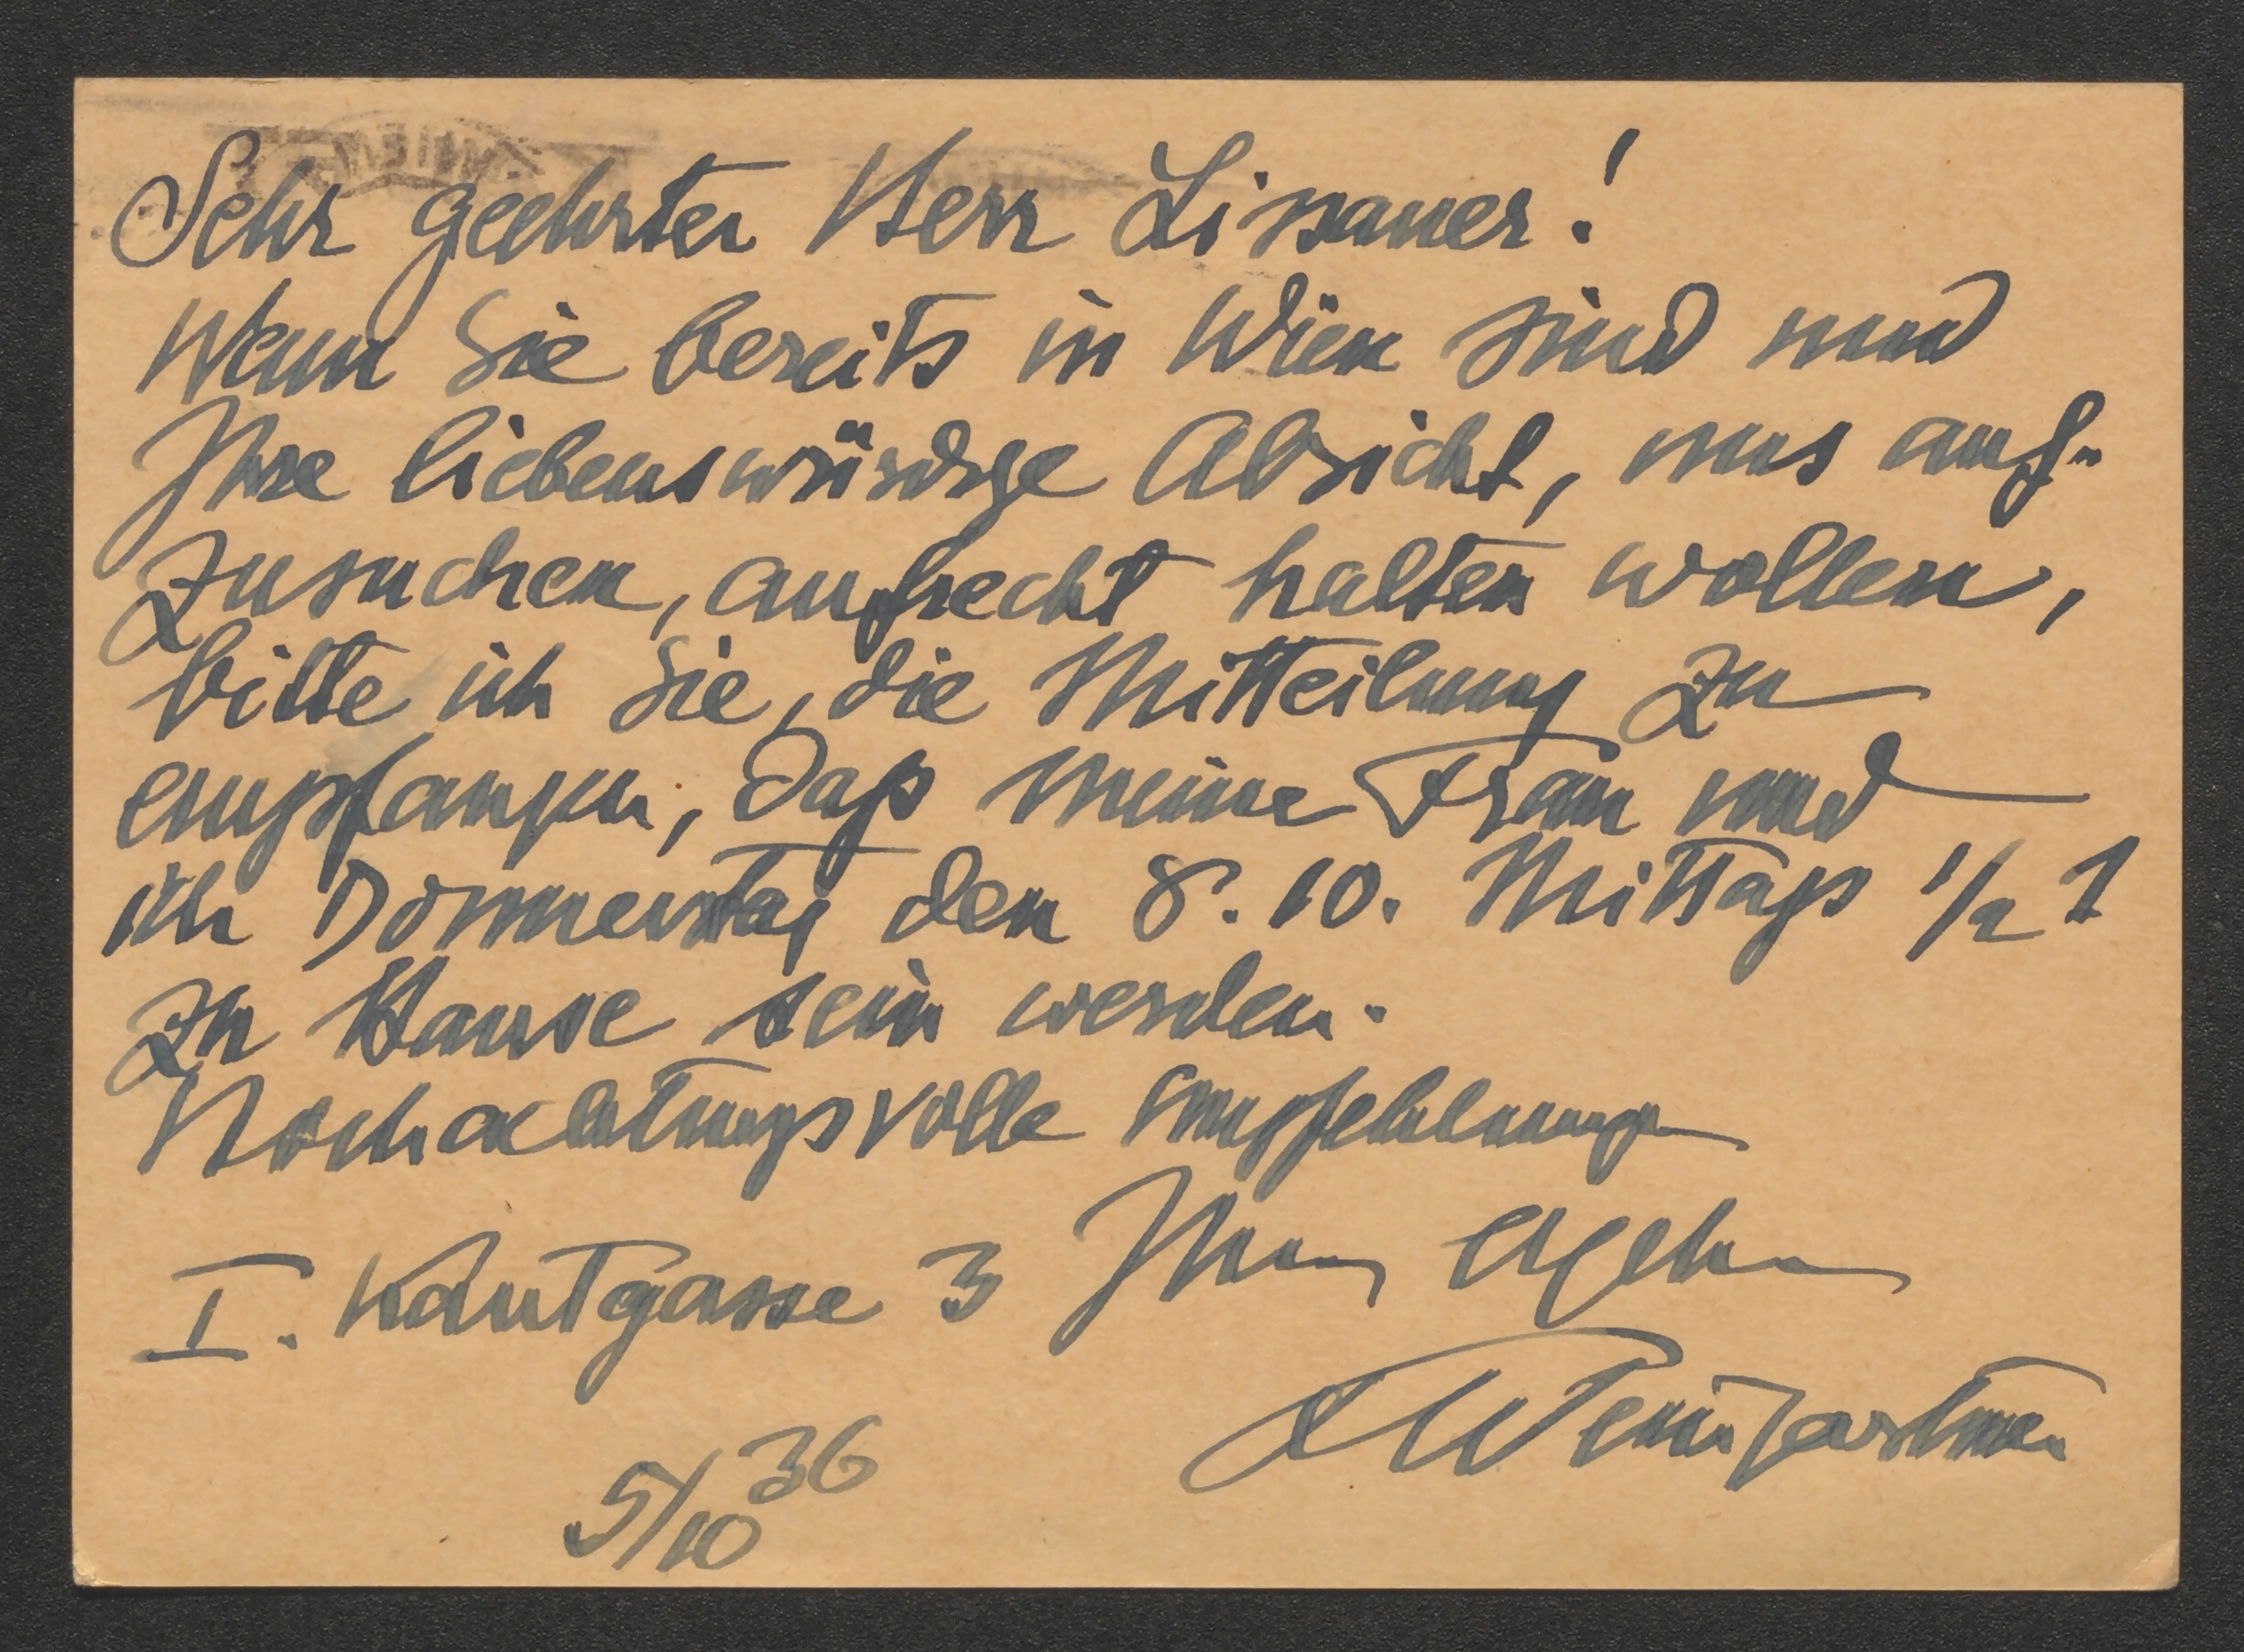 Sehr geehrter Herr Lissauer!
Wenn Sie bereits in Wien sind und
Ihre liebenswürdige Absicht, uns auf-
zusuchen, aufrecht halten wollen,
bitte ich Sie, die Mitteilung zu
empfangen, daß meine Frau und
ich Donnerstag den 8. 10. Mittags 1/2 1
zu Hause sein werden.
Hochachtungsvolle Empfehlungen
Ihres ergebenen
I. Kantgasse 3
Weingartner
5/10 36